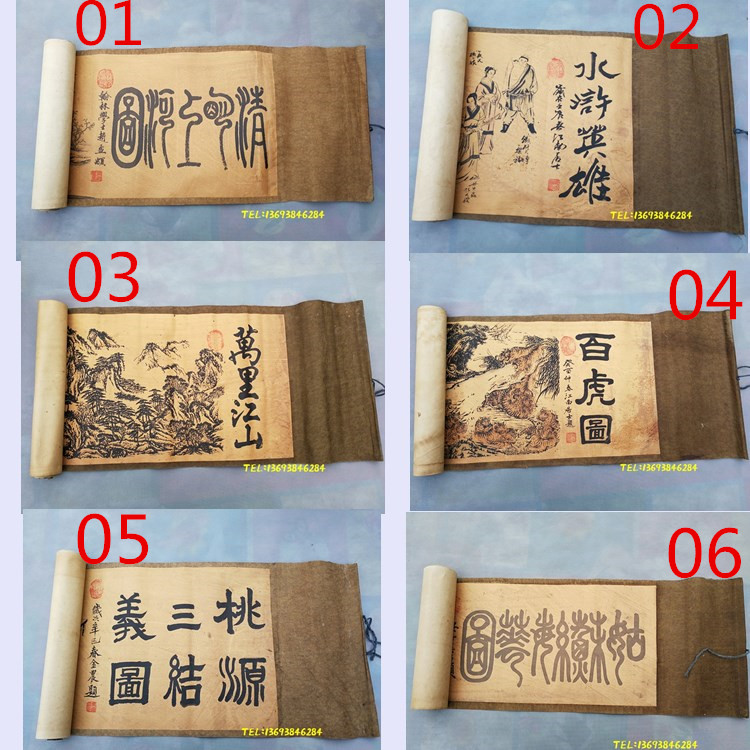 01
清明上河圖
翰林學士趙
TEL:13693846284
02
水滸英雄
TEL:13693846284
03
萬里江山
TEL:13693846284
04
百虎圖
癸酉仲春江南居士題
TEL:13693846284
05
桃源
三結
義圖
歲次辛巳春金農題
TEL:13693846284
06
姑蘇繁華圖
TEL:13693846284